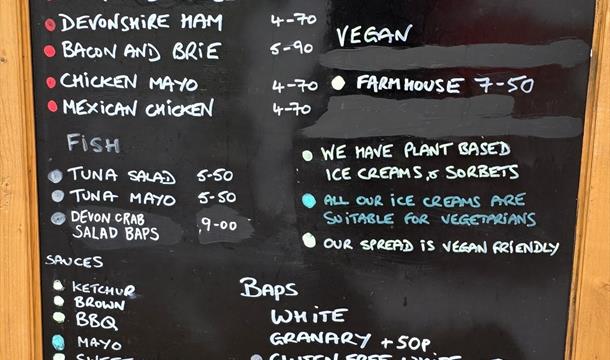 DEVONSHIRE HAM 4-70
BACON AND BRIE 5-90
CHICKEN MAYO 4-70
MEXICAN CHICKEN 4-70
FISH
TUNA SALAD 5-50
TUNA MAYO 5-50
DEVON CRAB
SALAD BAPS 9-00
SAUCES
KETCHUP
BROWN
BBQ
MAYO
SWEET
VEGAN
FARMHOUSE 7-50
WE HAVE PLANT BASED
ICE CREAMS & SORBETS
ALL OUR ICE CREAMS ARE
SUITABLE FOR VEGETARIANS
OUR SPREAD IS VEGAN FRIENDLY
BAPS
WHITE
GRANARY +50P
GLUTEN FREE WHITE